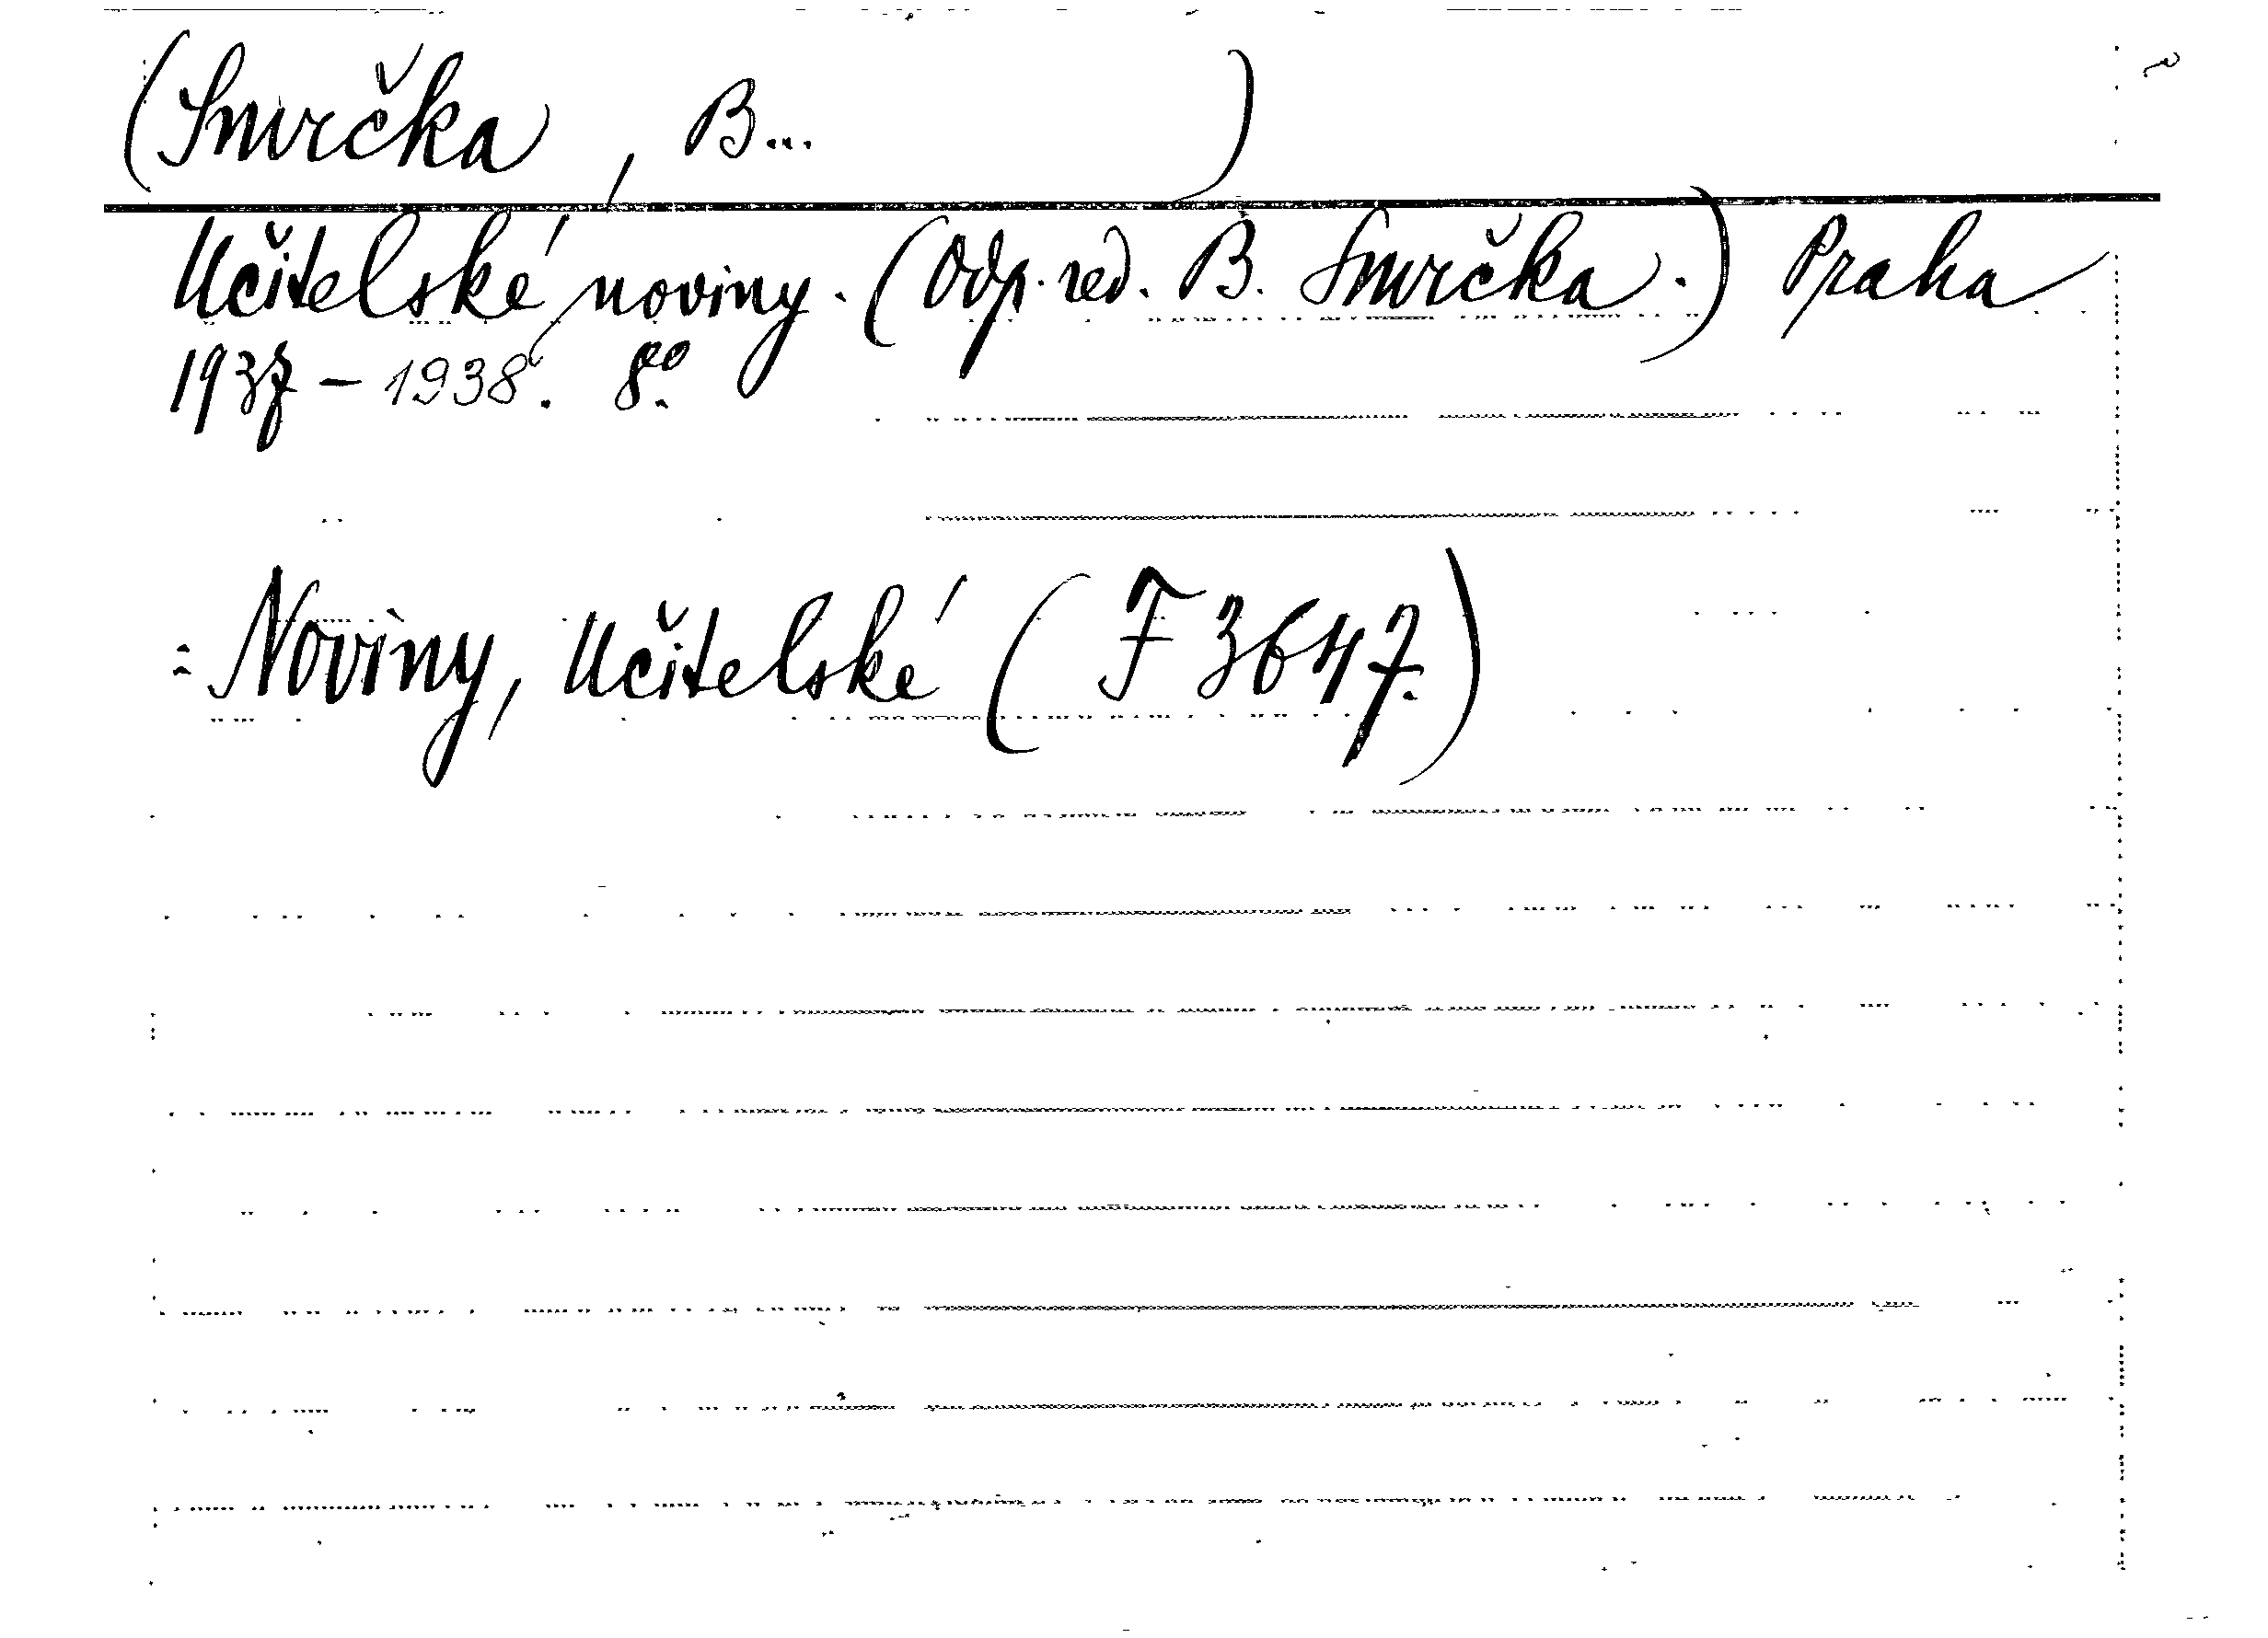 (Smrčka, B...)
Učitelské noviny. (Odp. red. B. Smrčka.) Praha
1937 – 1938. 8°.
= Noviny, Učitelské (F 3647.)